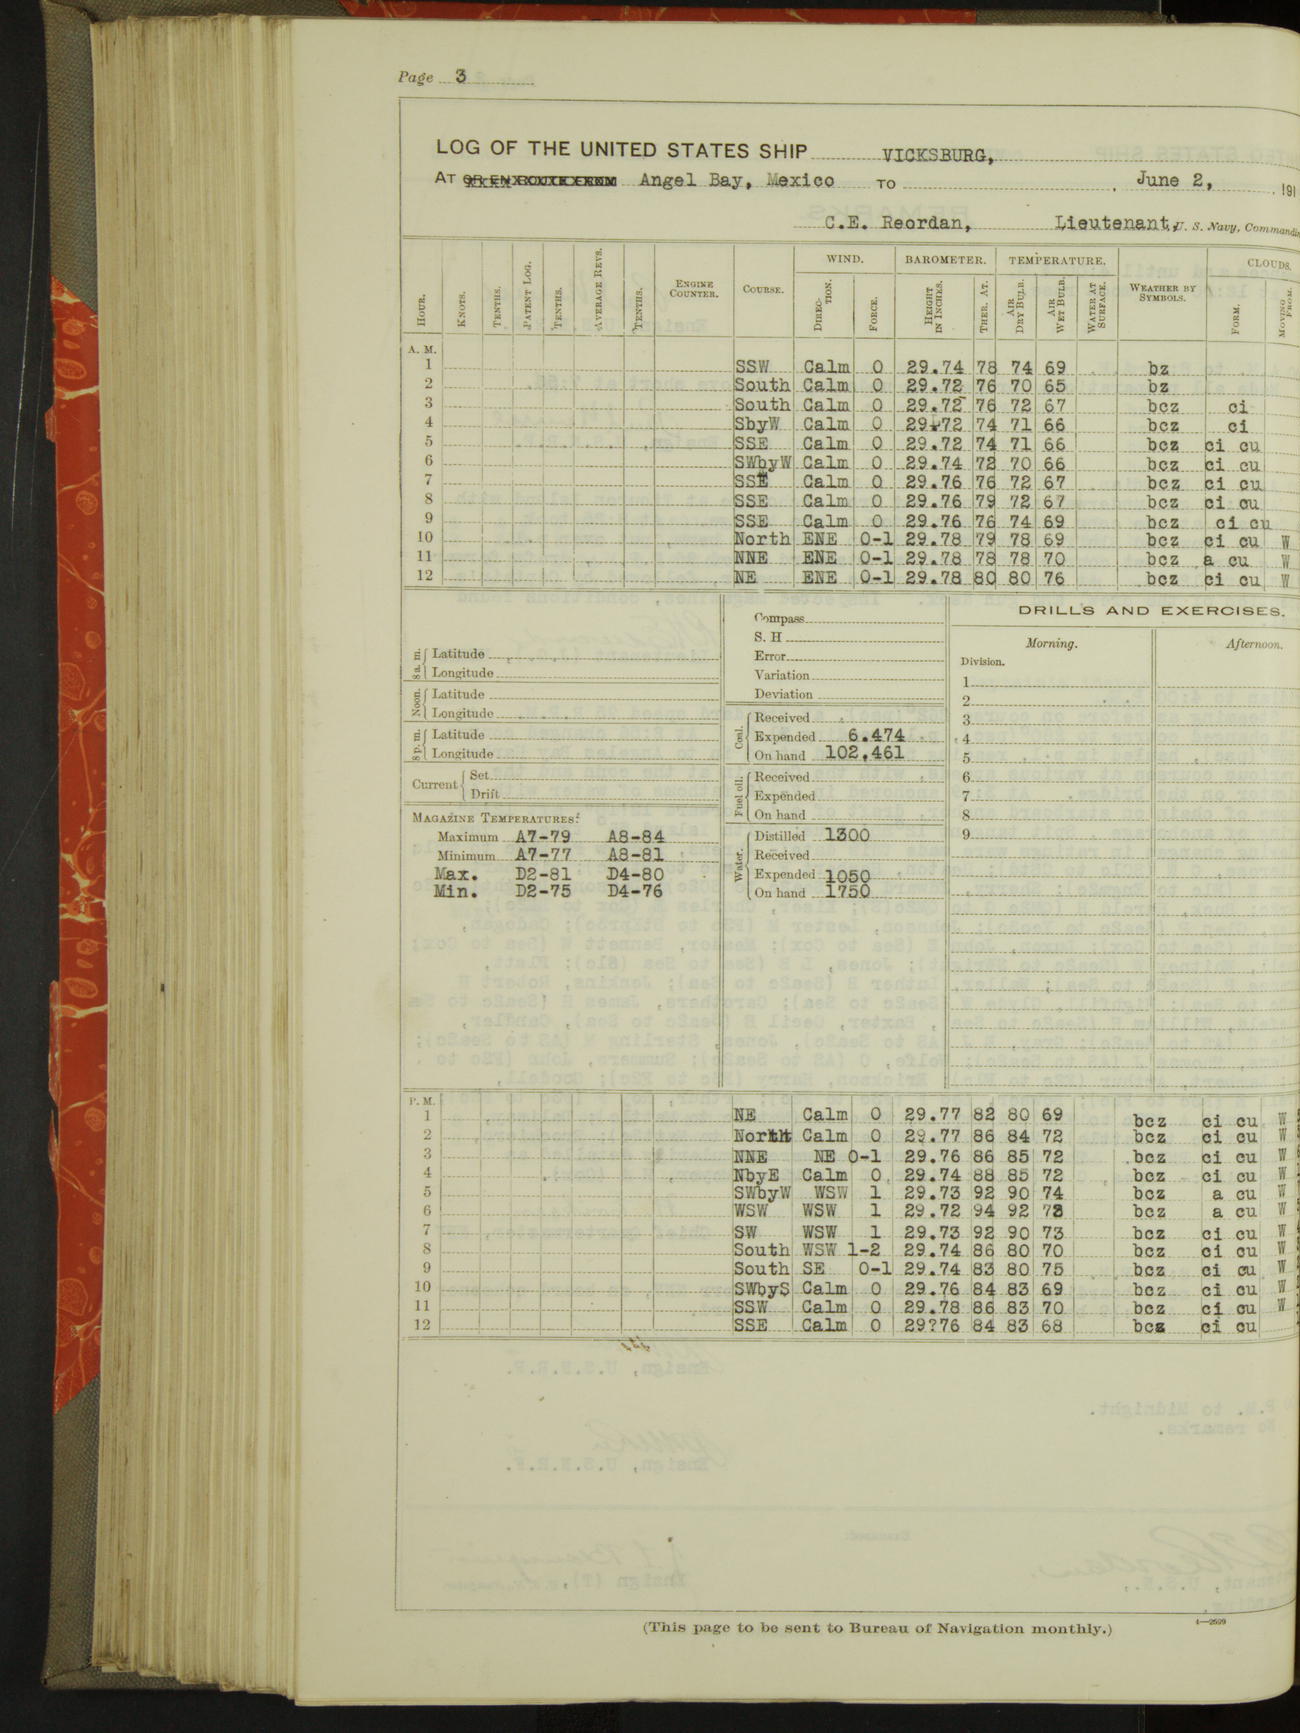 Page 3
LOG OF THE UNITED STATES SHIP VICKSBURG,
AT OR EN ROUTE FROM Angel Bay, Mexico TO , June 2, , 191
C.E. Reordan, Lieutenant, U. S. Navy, Commandin
HOUR. KNOTS. TENTHS. PATENT LOG. TENTHS. AVERAGE REVS. TENTHS. ENGINE COUNTER. COURSE. WIND. DIRECTION. FORCE. BAROMETER. HEIGHT IN INCHES. THER. AT. TEMPERATURE. AIR DRY BULB. AIR WET BULB. WATER AT SURFACE. WEATHER BY SYMBOLS. CLOUDS. FORM. MOVING FROM.
A. M.
1 SSW Calm 0 29.74 78 74 69 bz
2 South Calm 0 29.72 76 70 65 bz
3 South Calm 0 29.72 76 72 67 bcz ci
4 SbyW Calm 0 29.72 74 71 66 bcz ci
5 SSE Calm 0 29.72 74 71 66 bcz ci cu
6 SWbyW Calm 0 29.74 72 70 66 bcz ci cu
7 SSE Calm 0 29.76 76 72 67 bcz ci cu
8 SSE Calm 0 29.76 79 72 67 bcz ci cu
9 SSE Calm 0 29.76 76 74 69 bcz ci cu
10 North ENE 0-1 29.78 79 78 69 bcz ci cu W
11 NNE ENE 0-1 29.78 78 78 70 bcz a cu W
12 NE ENE 0-1 29.78 80 80 76 bcz ci cu W
8 a. m. Latitude
Longitude
Noon. Latitude
Longitude
8 p. m. Latitude
Longitude
Current Set
Drift
MAGAZINE TEMPERATURES:
Maximum A7-79 A8-84
Minimum A7-77 A8-81
Max. D2-81 D4-80
Min. D2-75 D4-76
Compass
S. H
Error
Variation
Deviation
Coal. Received
Expended 6.474
On hand 102,461
Fuel oil. Received
Expended
On hand
Water. Distilled 1300
Received
Expended 1050
On hand 1750
DRILLS AND EXERCISES.
Morning. Afternoon.
Division.
1
2
3
4
5
6
7
8
9
P. M.
1 NE Calm 0 29.77 82 80 69 bcz ci cu W
2 North Calm 0 29.77 86 84 72 bcz ci cu W
3 NNE NE 0-1 29.76 86 85 72 bcz ci cu W
4 NbyE Calm 0 29.74 88 85 72 bcz ci cu W
5 SWbyW WSW 1 29.73 92 90 74 bcz a cu W
6 WSW WSW 1 29.72 94 92 73 bcz a cu W
7 SW WSW 1 29.73 92 90 73 bcz ci cu W
8 South WSW 1-2 29.74 86 80 70 bcz ci cu W
9 South SE 0-1 29.74 83 80 75 bcz ci cu W
10 SWbyS Calm 0 29.76 84 83 69 bcz ci cu W
11 SSW Calm 0 29.78 86 83 70 bcz ci cu W
12 SSE Calm 0 29?76 84 83 68 bcz ci cu
(This page to be sent to Bureau of Navigation monthly.)
4—2599